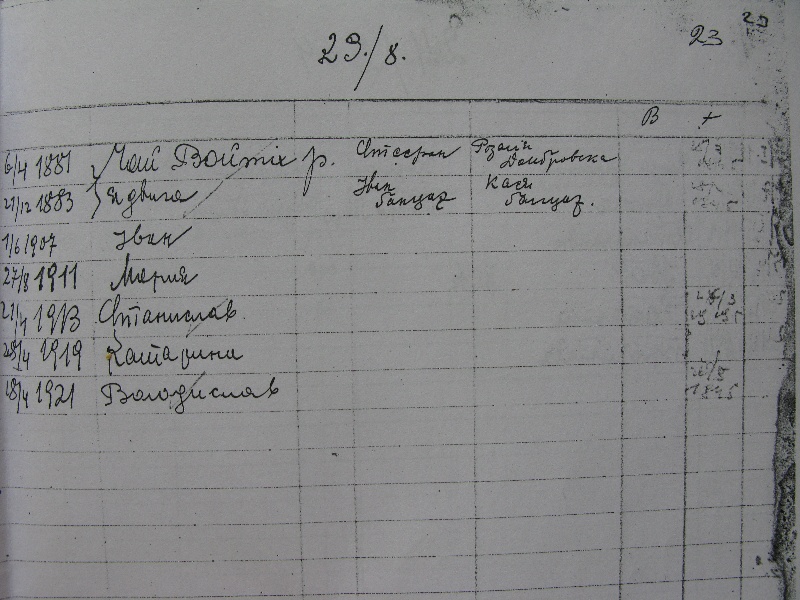 23
29./8.
В +
6/4 1881 Чай Войтіх р. Стефан Розалія Домбровска
21/12 1883 Ядвига Іван Банцар Кася Банцар.
1/6 1907 Іван
27/8 1911 Мария
21/4 1913 Станислав
1919 Катарина
28/4 1921 Володислав